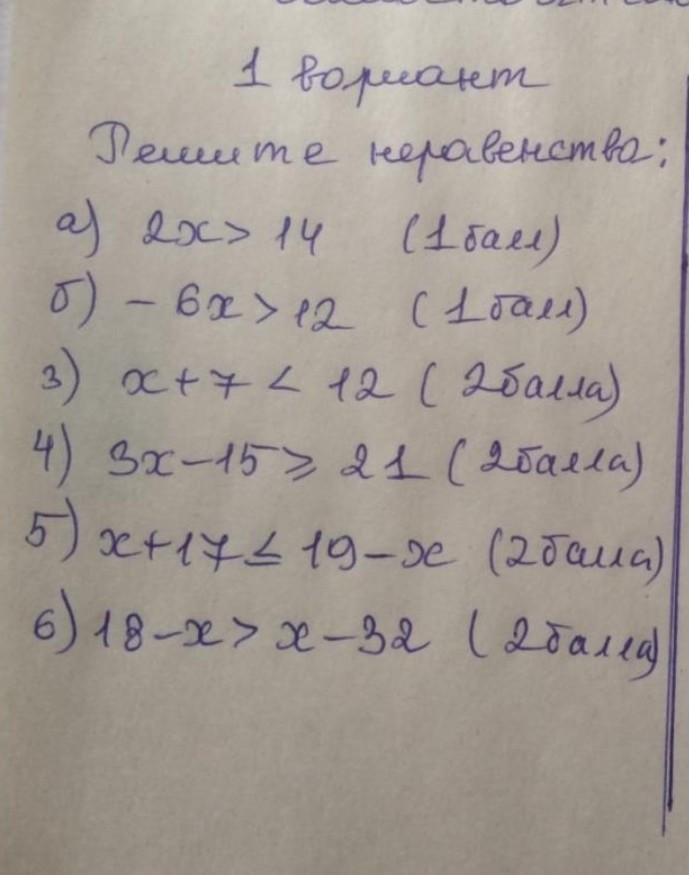 1 вориант
Решите неравенства:
а) 2x > 14 (1балл)
б) - 6x > 12 (1балл)
3) x + 7 < 12 (2балла)
4) 3x - 15 ≥ 21 (2балла)
5) x + 17 ≤ 19 - x (2балла)
6) 18 - x > x - 32 (2балла)